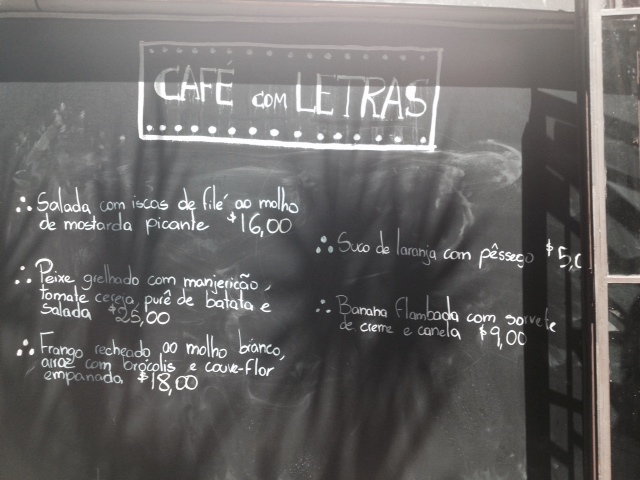 CAFÉ COM LETRAS
Salada com iscas de filé ao molho
de mostarda picante $16,00
Peixe grelhado com manjericão,
tomate cereja, purê de batata e
salada $25,00
Frango recheado ao molho branco,
arroz com brócolis e couve-flor
empanada $18,00
Suco de laranja com pêssego $5,0
Banana flambada com sorvete
de creme e canela $9,00